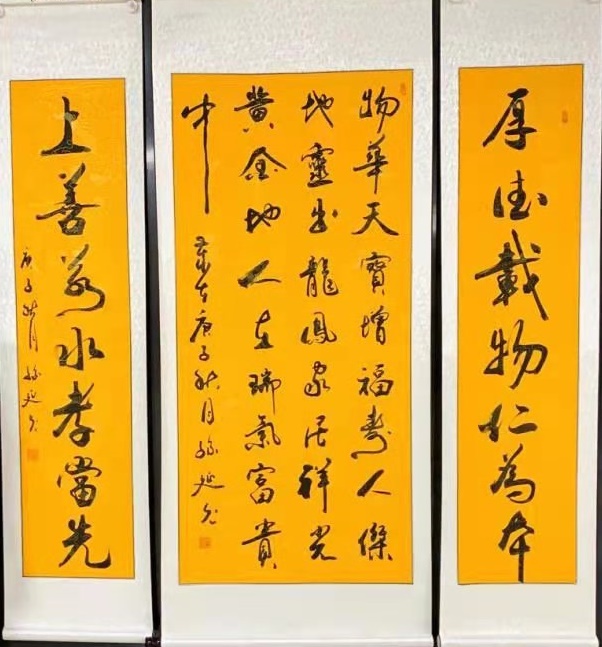 厚德載物仁為本
物華天寶增福壽人傑
地靈出龍鳳家居祥光
黄金地人在瑞氣富貴
中 歲在庚子秋月孫延
上善若水孝當先
庚子秋月孫延